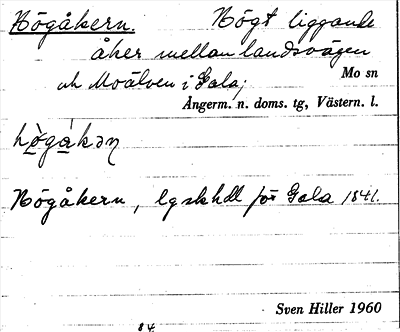 Högåkern. Högt liggande
åker mellan landsvägen
och Moälven i Gala;
Mo sn
Ångerm. n. doms. tg, Västern. l.
hö̀gàkəɲ
Högåkern, lgskhdl för Gala 1841.
Sven Hiller 1960
84